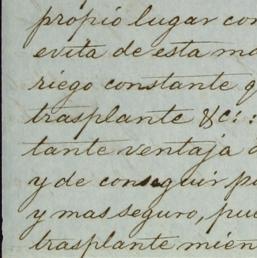 propio lugar con
evita de esta ma
riego constante q
trasplante &c:
tante ventaja
y de conseguir p
y mas seguro, pu
trasplante mien